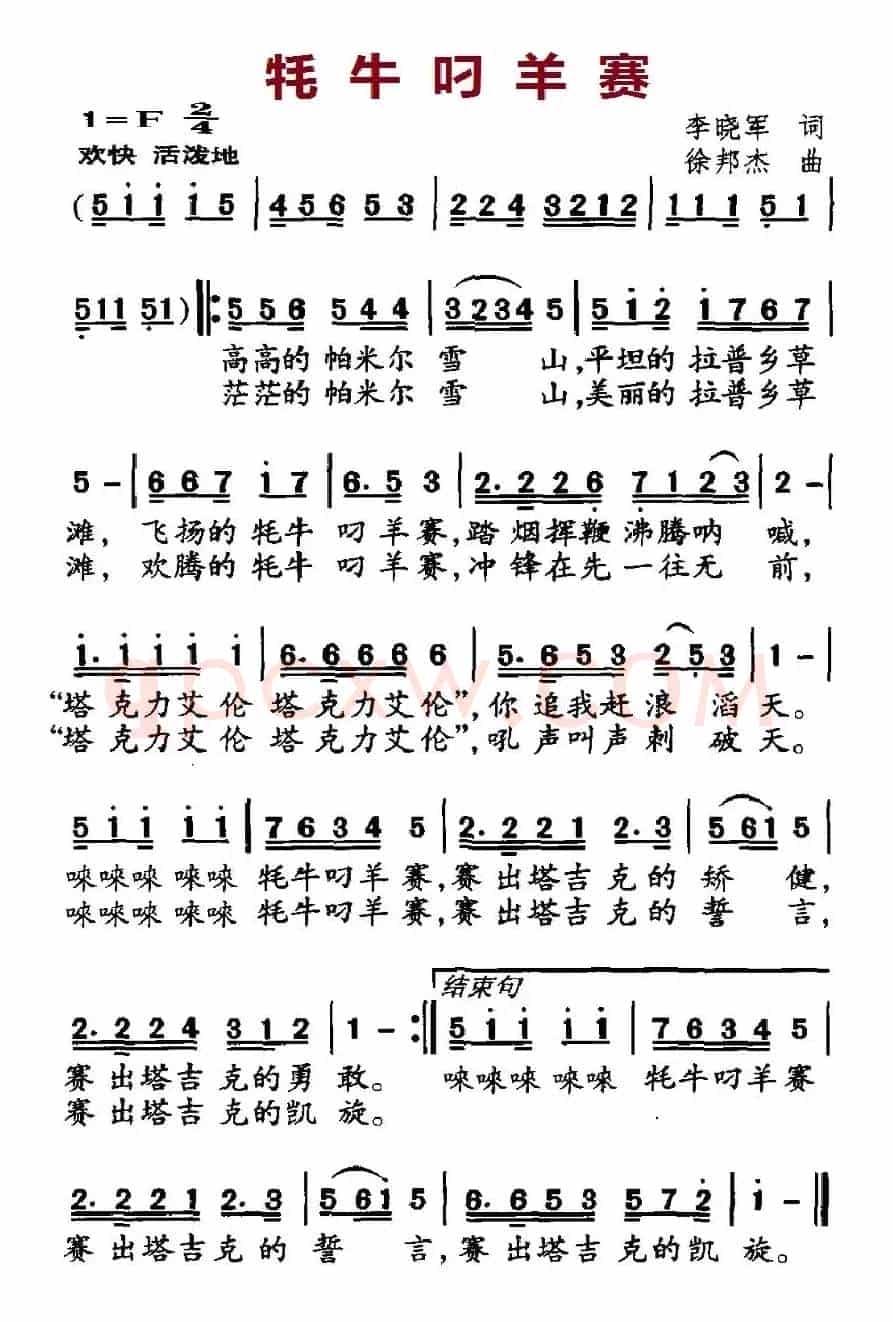 牦牛叼羊赛
1=F 2/4
李晓军 词
欢快 活泼地
徐邦杰 曲
(5 i i i 5 | 4 5 6 5 3 | 2 2 4 3 2 1 2 | 1 1 1 5 1 |
5 1 1 5 1) |: 5 5 6 5 4 4 | 3 2 3 4 5 | 5 i 2 i 7 6 7 |
高高的 帕米尔 雪 山,平坦的 拉普乡草
茫茫的 帕米尔 雪 山,美丽的 拉普乡草
5 - | 6 6 7 i 7 | 6. 5 3 | 2. 2 2 6 7 1 2 3 | 2 - |
滩, 飞扬的 牦牛 叼羊赛,踏烟挥鞭 沸腾呐 喊,
滩, 欢腾的 牦牛 叼羊赛,冲锋在先 一往无 前,
i. i i i i | 6. 6 6 6 6 | 5. 6 5 3 2 5 3 | 1 - |
“塔 克力艾伦 塔 克力艾伦”,你追我赶 浪 滔 天。
“塔 克力艾伦 塔 克力艾伦”,吼声叫声 刺 破 天。
5 i i i i | 7 6 3 4 5 | 2. 2 2 1 2. 3 | 5 6 i 5 |
唻唻唻 唻唻 牦牛叼羊赛,赛出塔吉克的 矫 健,
唻唻唻 唻唻 牦牛叼羊赛,赛出塔吉克的 誓 言,
结束句
2. 2 2 4 3 1 2 | 1 - :| 5 i i i i | 7 6 3 4 5 |
赛出塔吉克的勇 敢。 唻唻唻 唻唻 牦牛叼羊赛
赛出塔吉克的凯 旋。
2. 2 2 1 2. 3 | 5 6 i 5 | 6. 6 5 3 5 7 2 | i - ||
赛出塔吉克的 誓 言,赛出塔吉克的凯 旋。
qpcxw.com